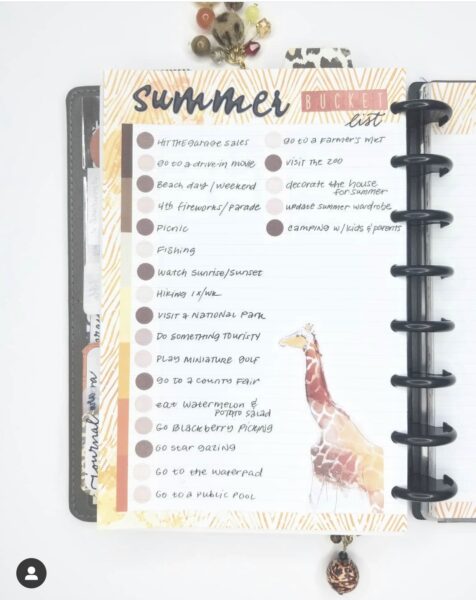 summer BUCKET
list
HIT THE GARAGE SALES
go to a drive-in movie
Beach day / weekend
4th fireworks / parade
Picnic
Fishing
Watch Sunrise/Sunset
Hiking 1x/wk
Visit a National Park
Do something touristy
Play miniature golf
Go to a county fair
eat watermelon &
potato salad
Go Blackberry Picking
Go star gazing
Go to the waterpad
Go to a public pool
go to a Farmer's MKT
Visit the zoo
decorate the house
for summer
update summer wardrobe
camping w/ kids & parents
Journal